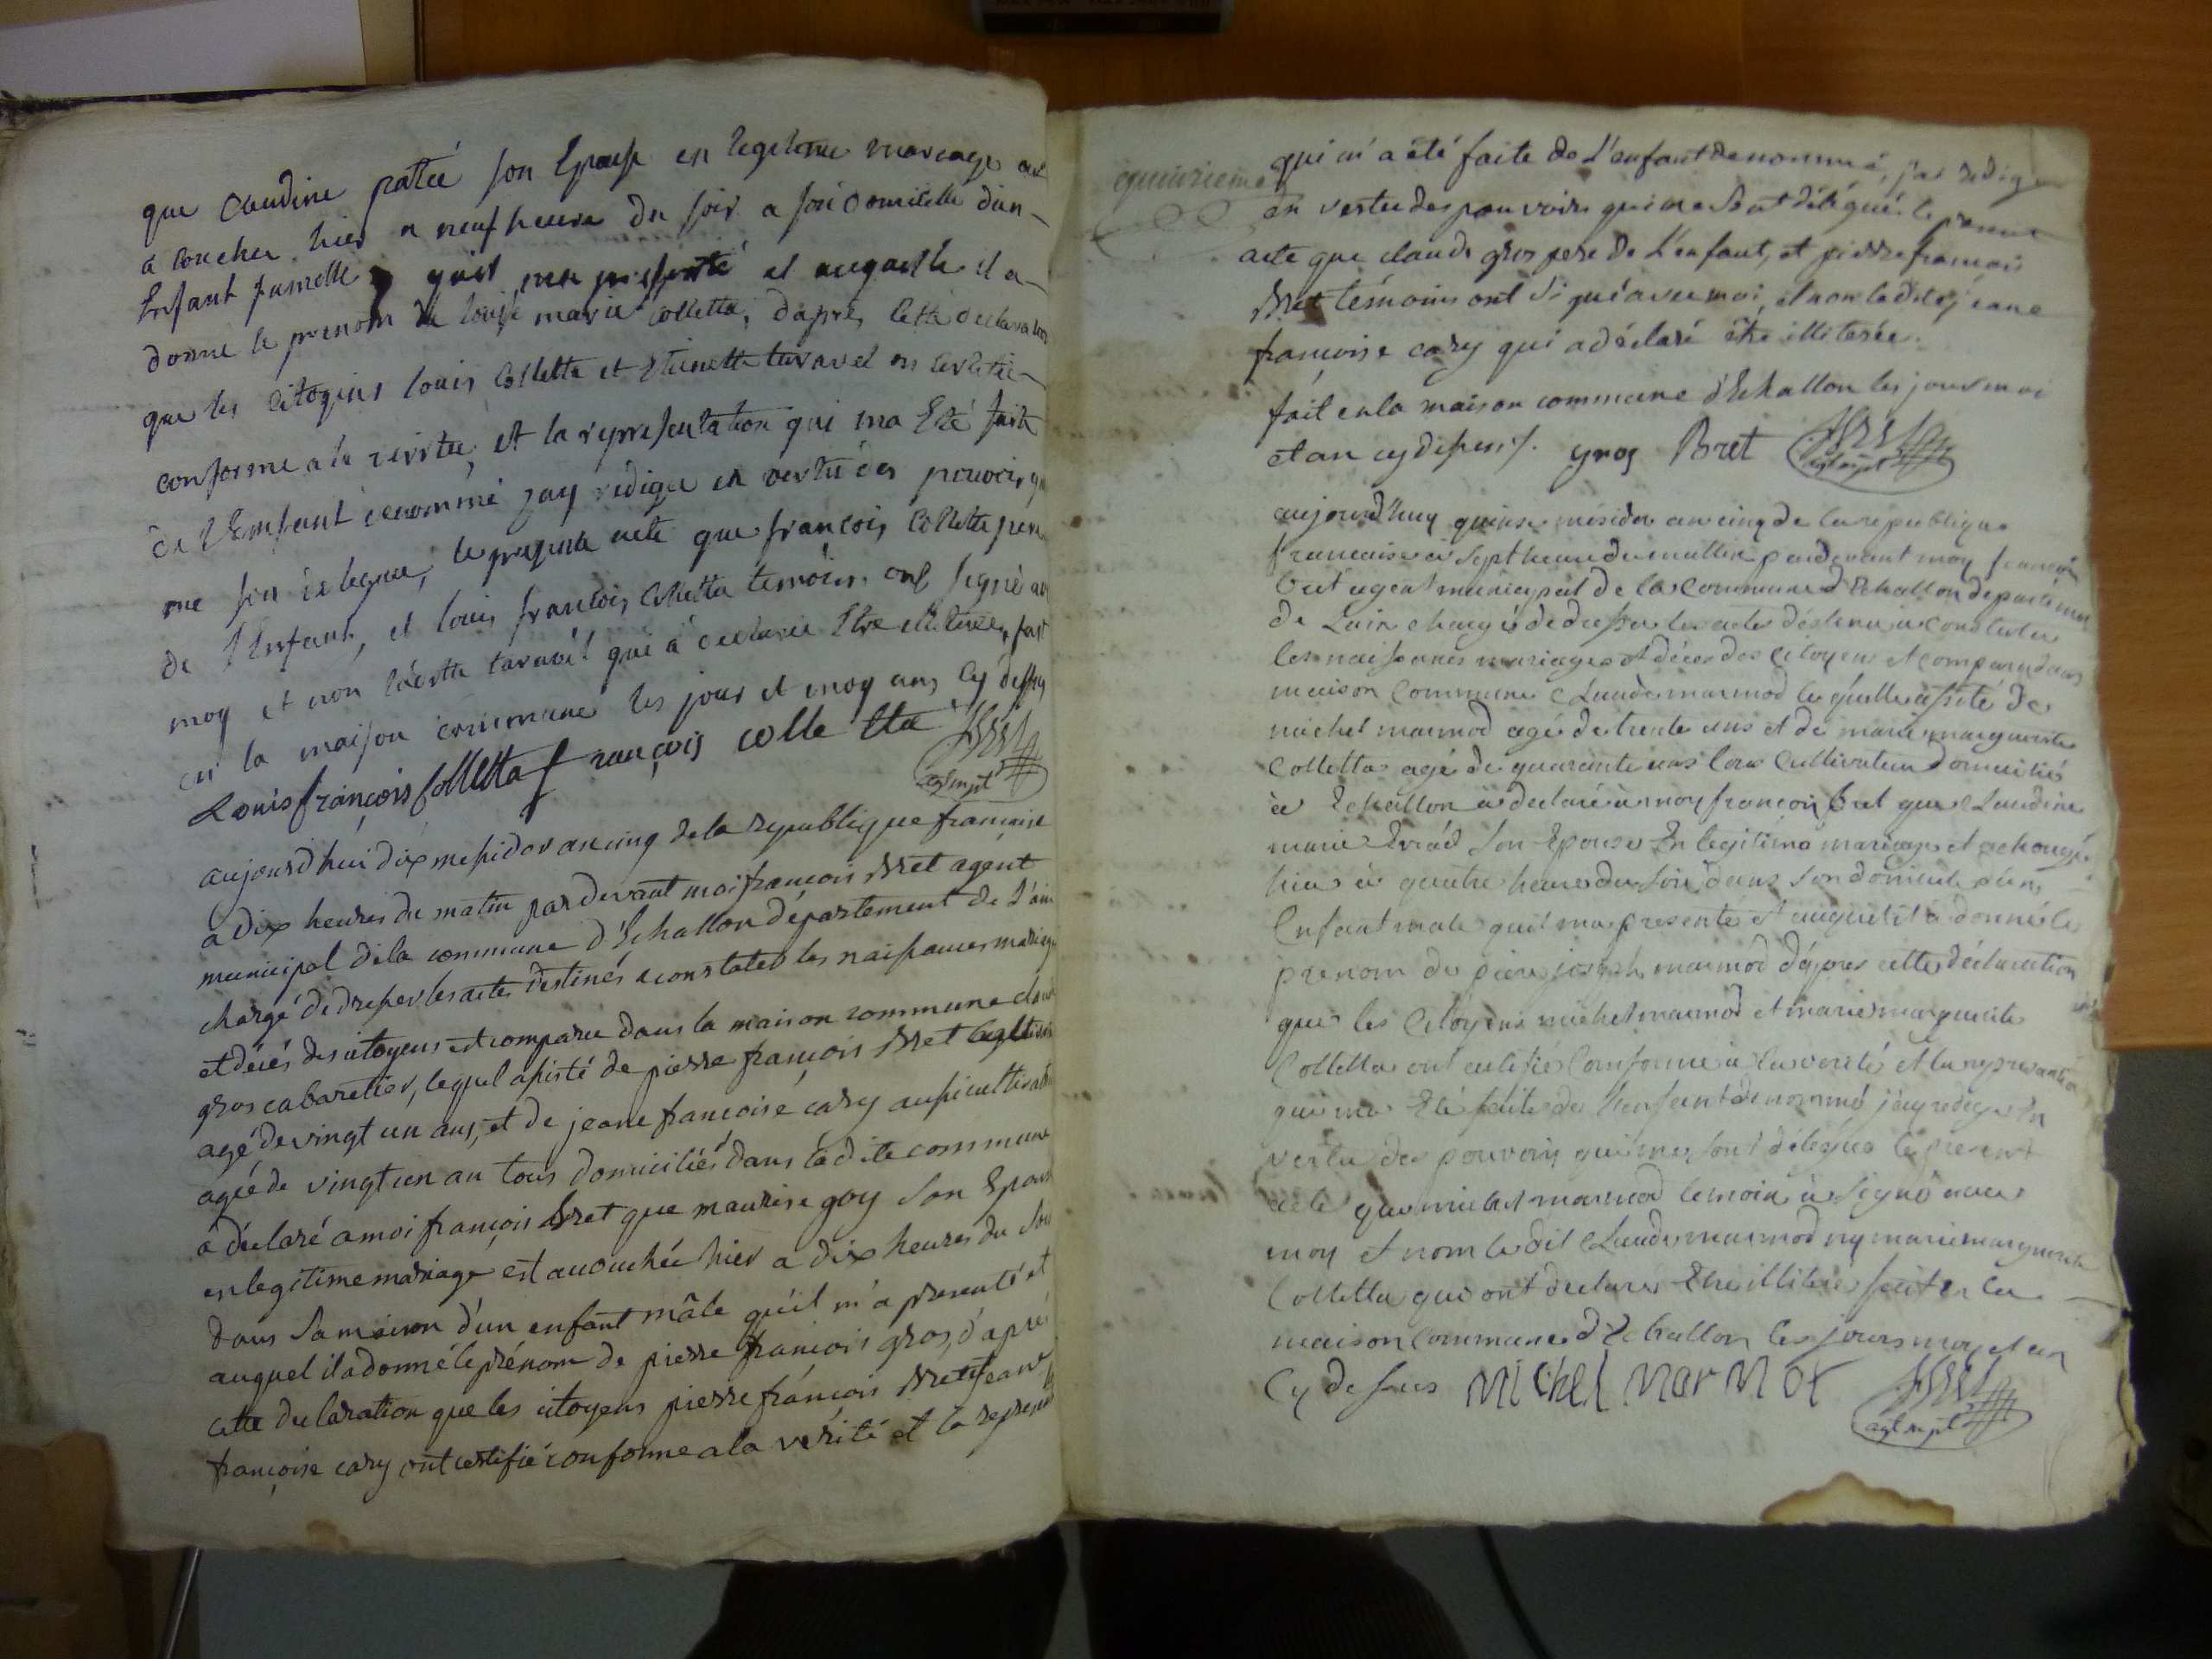 que Claudine patié son Epouse en legitime mariage est
a coucher hier a neuf heure du soir a son domicille d'un
Enfant fumelle quil ma presenté et auquelle il a
donné le prenom de louise marie Colletta, dapré, cette declaration
que les citoyens louis Colletta et Etienette taravel on certifié
conforme a la veritée, et la representation qui ma Eté faite
de l'Enfant denommé jay redigé en vertu des pouvoirs qu
me son delegué, le present acte que francois Colletta pere
de l'Enfant, et louis francois Colletta temoin, ont signé av
moy et non laditte taravel qui à declaree Etre illiteree, fait
en la maison commune les jour et moy an, cy dessu
Louis françois Colletta françois colle tta
agt mpl
aujourd'hui dix messidor an cinq de la republique française
a dix heures du matin par devant moi francois Bret agent
municipal de la commune d'Echallon département de L'ain
chargé de dresser les actes destinés a constater les naissances mariage
et décés des citoyens est comparu dans la maison commune claude
gros cabaretier, lequel assisté de pierre francois Bret cultiva
agé de vingt un ans, et de jeane francoise cary aussi cultivat
agée de vingt un an tous domiciliés dans ladite commune
a déclaré a moi francois Bret que maurise goy son Epous
en legitime mariage est acouchée hier a dix heures du soir
dans sa maison d'un enfant mâle qu'il m'a presenté et
auquel il a donné le prénom de pierre francois gros, d'apré
cette declaration que les citoyens pierre françois Bret et jeane
françoise cary ont certifié conforme a la verité et la represent
quinzieme
qui m'a été faite de L'enfant denommé, j'ai redigé
en vertu des pouvoirs qui me sont délégués le present
acte que claude gros pere de L'enfant, et pierre francois
Bret témoins ont signé avec moi, et non ladite jeane
francoise cary qui a déclaré être illiterée.
fait en la maison commune d'Echallon les jour moi
et an cy dessus. gros Bret
agt mpl
aujourd'huy quinze mésidor an cinq de la republique
francaise à sept heure du mattin pardevant moy françois
bret agent municipal de la commune d'Echallon departemen
de Lain chargés de dresser les acte déstinés à constater
les naissances mariages et décès des citoyens est comparu dans
maison commune Claude marmod le quelle assité de
michel marmod agé de trente ans et de marie marguerite
Colletta agé de quarante ans tous cultivateur domiciliés
à Echallon à declaré à moy françois bret que Claudine
marie son Epouse En legitime mariage et achouché
hier à quatre heure du soir dans son domicile d'un
Enfant male quil ma presenté et auquel il à donné le
prenom de piere joseph marmod d'apres cette déclaration
que les Citoyens michel marmod et marie marguerite
Colletta ont certifiés Conforme à la verité et la representa
qui ma Eté faite de l'enfant denommé j'ay redigé En
vertu des pouvoirs qui me sont délégués le present
acte que michel marmod temoin à signé avec
moy et nom le dit Claude marmod ny marie marguerite
Colletta qui ont declarer Etre illiteré fait en la
maison Commune d'Echallon les jours moy et an
Cy dessus Michel MarMot
agt mpl